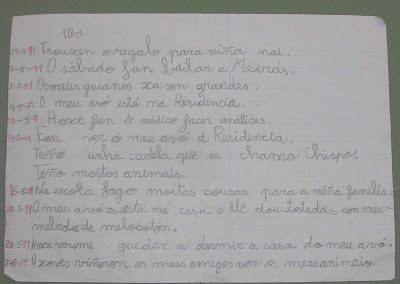 Alba
29-4-11. Trouxen o regalo para miña nai.
2-5-11 O sábado fun bailar a Meirás.
5-5-11 Os meus gusanos xa son grandes.
9-5-11 O meu avó está na Residencia.
10-5-11 Hoxe fun ó médico facer análises.
Fun ver ó meu avó á Residencia.
Teño unha cadela que se chama Chispa.
Teño moitos animais.
Na escola fago moitas cousas para a miña familia.
20-5-11 O meu avó xa está na casa e lle dou tostadas con mer-
melada de melocotón.
Hoxe voume quedar a dormir a casa do meu avó.
2-6-11 O xoves viñeron os meus amigos ver os meus animais.